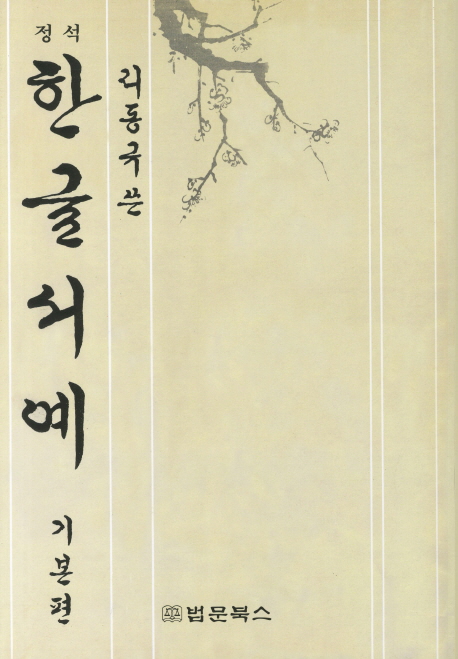 정석
한글서예
기본편
리동국 쓴
법문북스